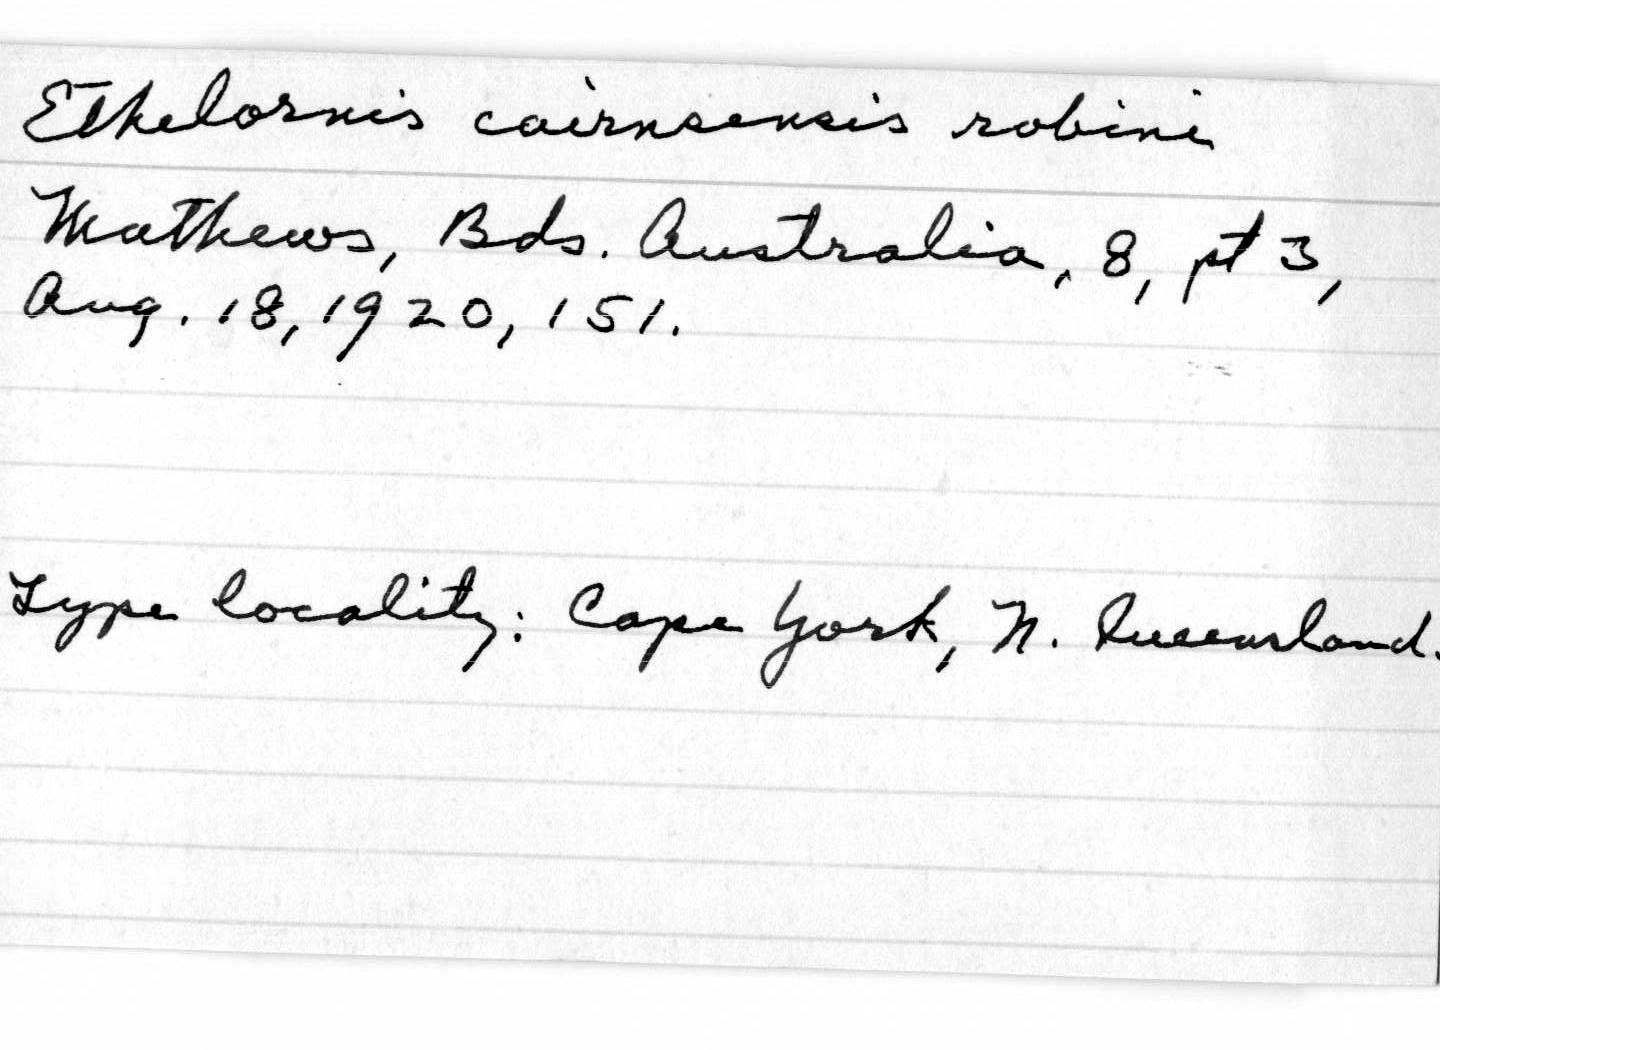 Ethelornis cairnsensis robini
Mathews, Bds. Australia, 8, pt 3,
Aug. 18, 1920, 151.
Type locality: Cape York, N. Queensland.